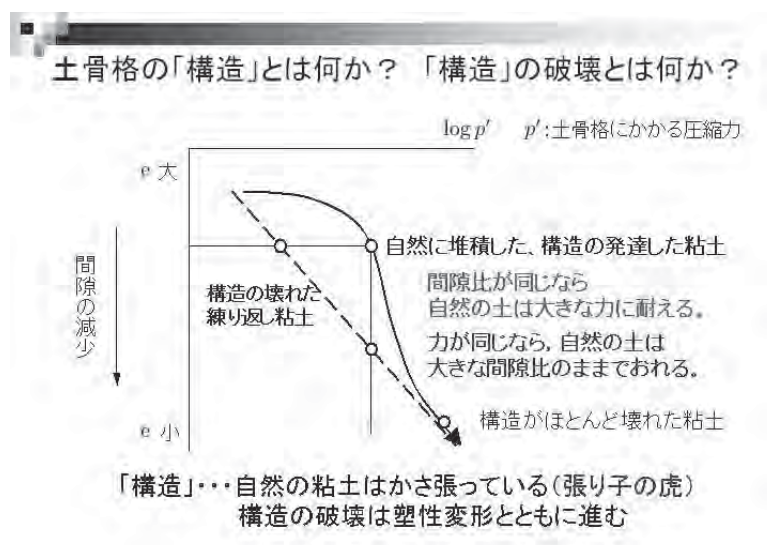 土骨格の「構造」とは何か？ 「構造」の破壊とは何か？
log p′ p′:土骨格にかかる圧縮力
e 大
間隙の減少
自然に堆積した、構造の発達した粘土
構造の壊れた
練り返し粘土
間隙比が同じなら
自然の土は大きな力に耐える。
力が同じなら，自然の土は
大きな間隙比のままでおれる。
e 小
構造がほとんど壊れた粘土
「構造」･･･自然の粘土はかさ張っている（張り子の虎）
構造の破壊は塑性変形とともに進む